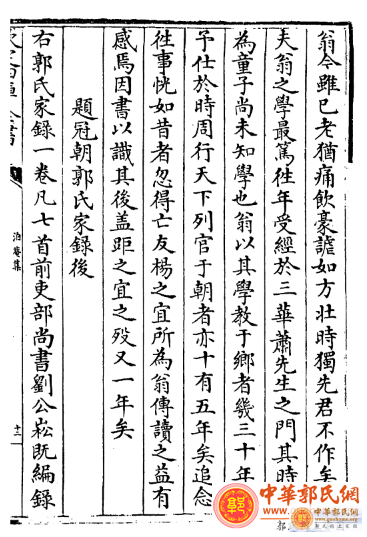 翁今雖已老猶痛飲豪談如方壯時獨先君不作矣
夫翁之學最篤徃年受經於三華蕭先生之門其時
為童子尚未知學也翁以其學教于鄉者幾三十年
予仕於時周行天下列官于朝者亦十有五年矣追念
徃事恍如昔者忽得亡友楊之宜所為翁傳讀之益有
感焉因書以識其後盖距之宜之歿又一年矣
題冠朝郭氏家錄後
右郭氏家錄一卷凡七首前吏部尚書劉公崧既編錄
泊菴集
十二
中華郭氏網
www.guoshi.org